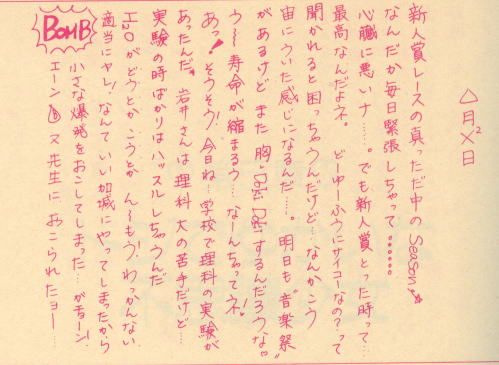 △月×日
新人賞レースの真っただ中のSeason☆
なんだか毎日緊張しちゃって。。。。。。
心臓に悪いナ……。でも新人賞とった時って…
最高なんだよネ。どーゆーふうにサイコーなの?って
聞かれると困っちゃうんだけど…なんかこう
宙にういた感じになるんだ……。明日も"音楽祭"
があるけど また 胸 Doki Doki するんだろうな。。
ウ〜寿命が縮まるウ…。なーんちゃってネ!
あっ!そうそう!今日ね…学校で理科の実験が
あったんだ。岩井さんは理科大の苦手だけど…
実験の時ばかりはハッスルしちゃうんだ
H₂Oがどうとかこうとか んーもう!わっかんない
適当にヤレ!なんていい加減にやってしまったから
小さな爆発をおこしてしまった…がぁーン!
BOMB エーン ヌ先生に おこられたョー……